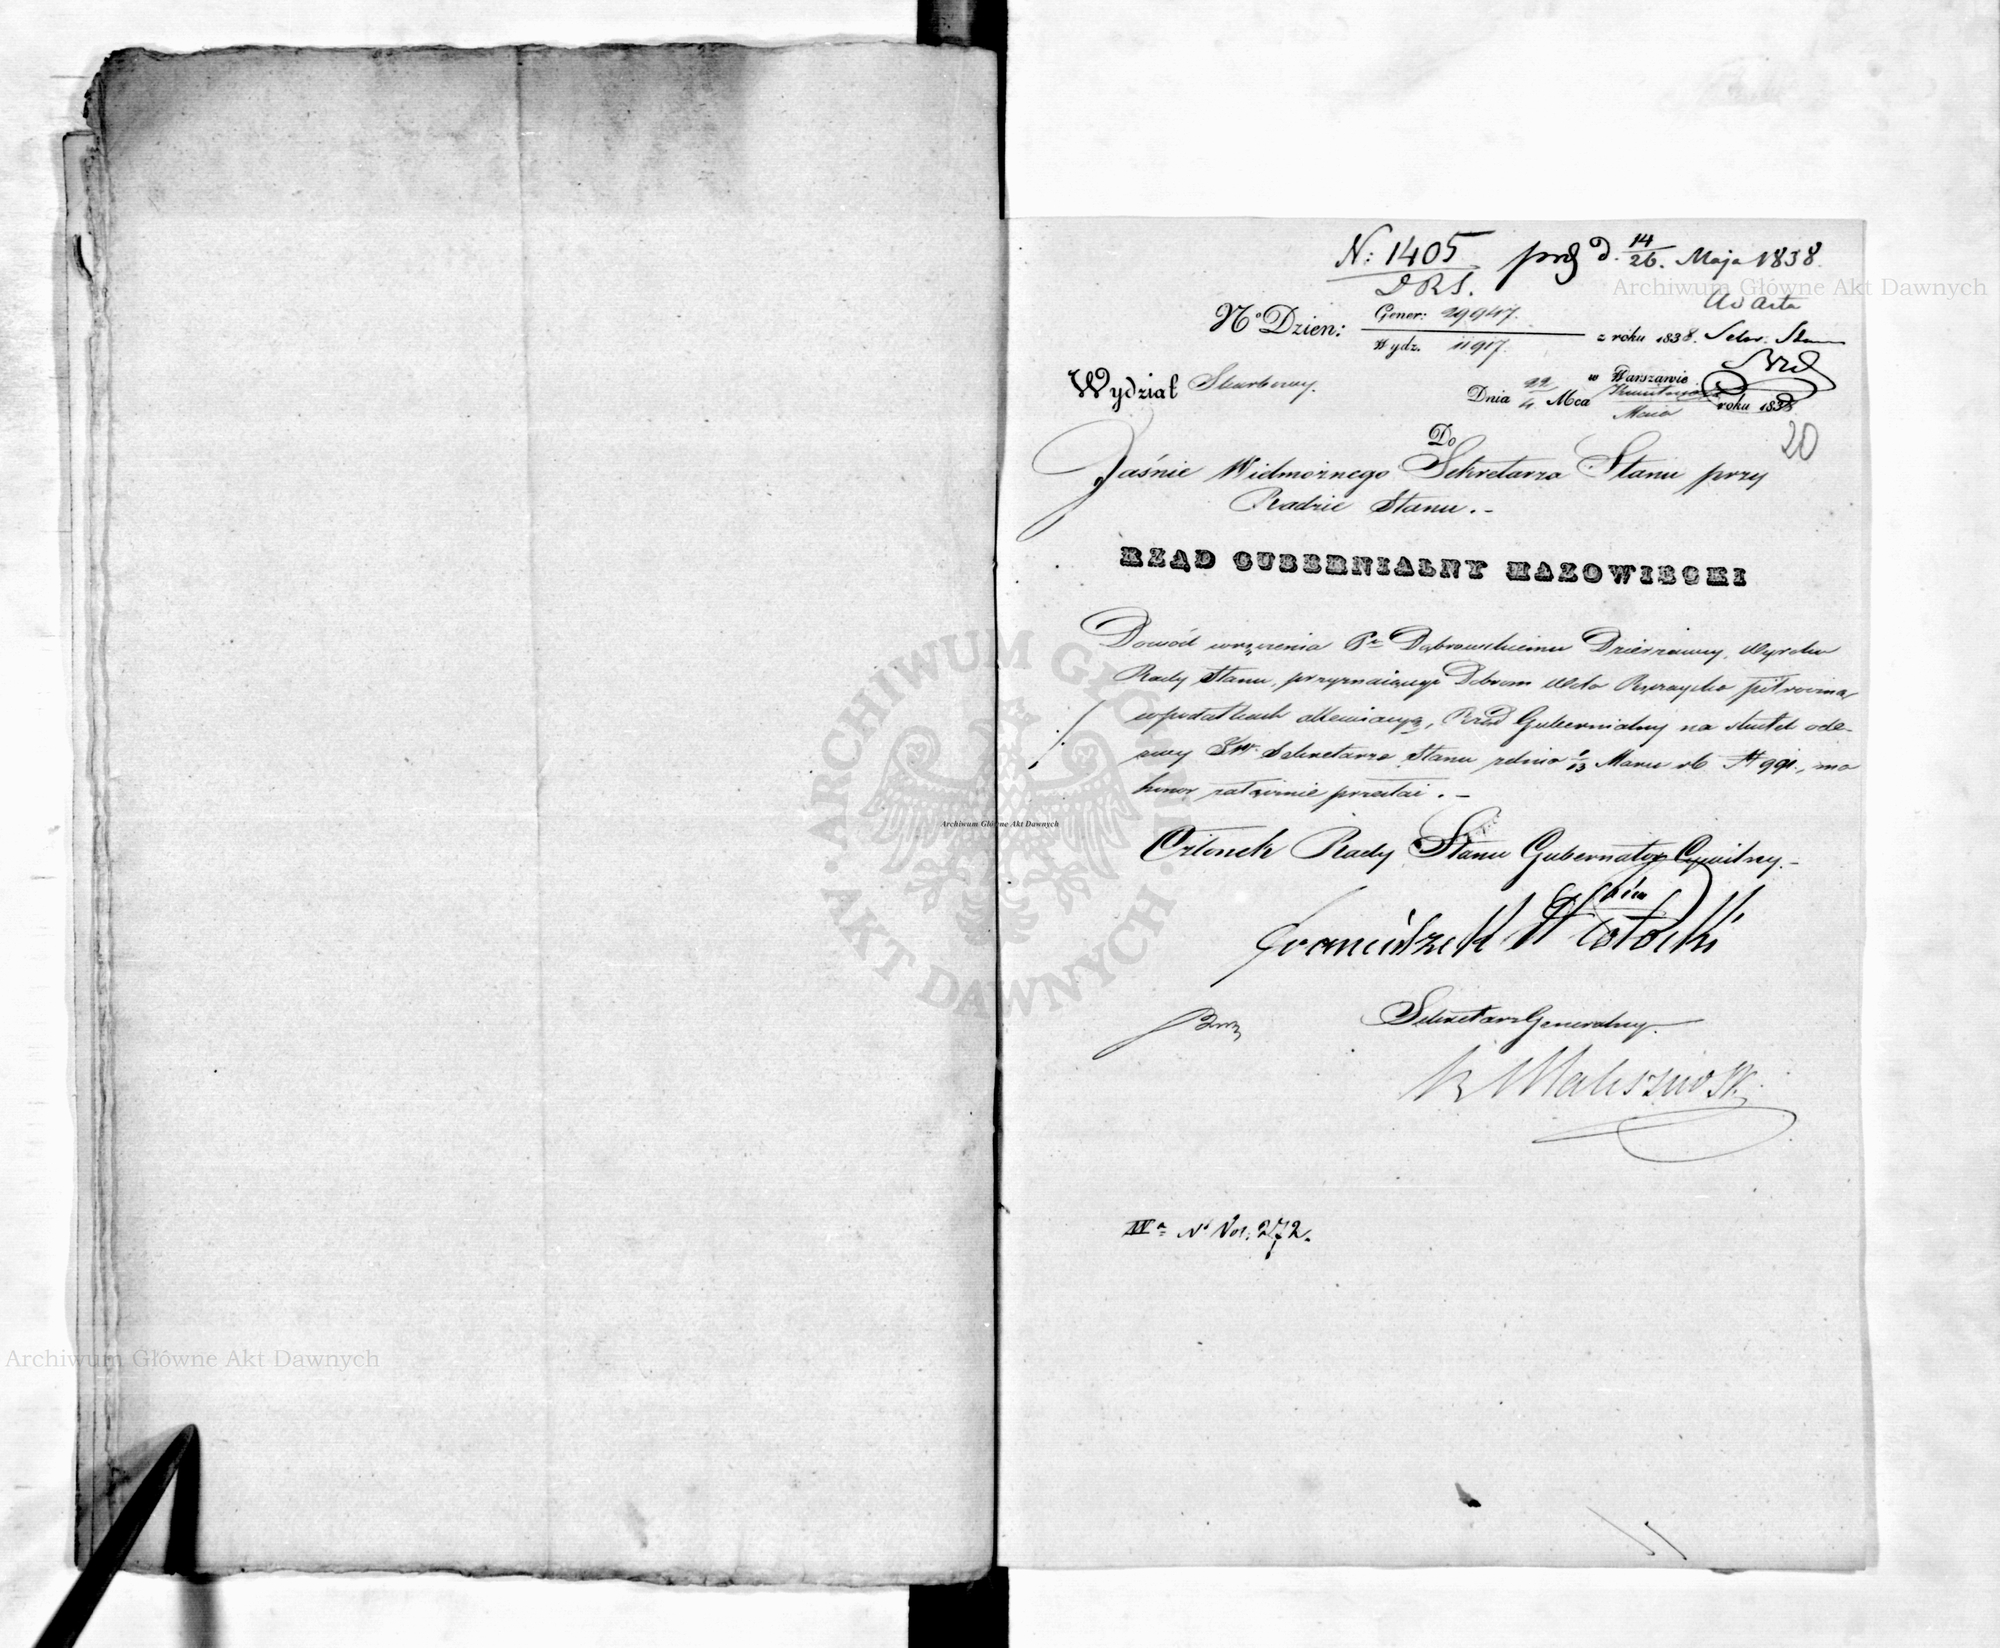 N: 1405 prs d. 14/26. Maja 1838.
D R S.
Ad Acta
Nº Dzien: Gener: 29947.
Wydz. 11917. z roku 1838. Sekr. Stanu
Wydział Skarbowy.
w Warszawie
Dnia 22/4 Mca Kwietnia/Maia roku 1838
20
Do
Jaśnie Wielmożnego Sekretarza Stanu przy
Radzie Stanu.-
RZĄD GUBERNIALNY MAZOWIECKI
Dowód wręczenia Pu Dąbrowskiemu Dzierżawcy, Wyroku
Rady Stanu, przyznaiącego Dobrom
w podatkach, Rząd Gubernialny na skutek ode-
zwy JW. Sekretarza Stanu z dnia 1/13 Marca rb. N 991., ma
honor załącznie przesłać.-
Członek Rady Stanu Gubernator Cywilny.-
Franciszek Potocki
Sekretarz Generalny.
Maliszewski
IVa N Vol: 272.
Archiwum Główne Akt Dawnych
Archiwum Główne Akt Dawnych
Archiwum Główne Akt Dawnych
ARCHIWUM GŁÓWNE AKT DAWNYCH